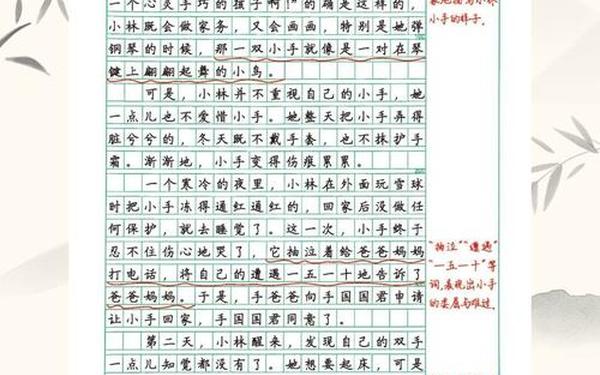 一个心灵手巧的孩子啊！”的确是这样的，
小林既会做家务，又会画画，特别是她弹
钢琴的时候，那一双小手就像是一对在琴
键上翩翩起舞的小鸟。
可是，小林并不重视自己的小手，她
一点儿也不爱惜小手。她整天把小手弄得
脏兮兮的，冬天既不戴手套，也不抹护手
霜。渐渐地，小手变得伤痕累累。
一个寒冷的夜里，小林在外面玩雪球
时把小手冻得通红通红的，回家后没做任
何保护，就去睡觉了。这一次，小手终于
忍不住伤心地哭了，它抽泣着给爸爸妈妈
打电话，将自己的遭遇一五一十地告诉了
爸爸妈妈。于是，手爸爸向手国国君申请
让小手回家，手国国君同意了。
第二天，小林醒来，发现自己的双手
一点儿知觉都没有了。她想要起床，可是
小手的样子。
“抽泣”“遭遇”
“一五一十”等
词，表现出小手
的委屈与难过。